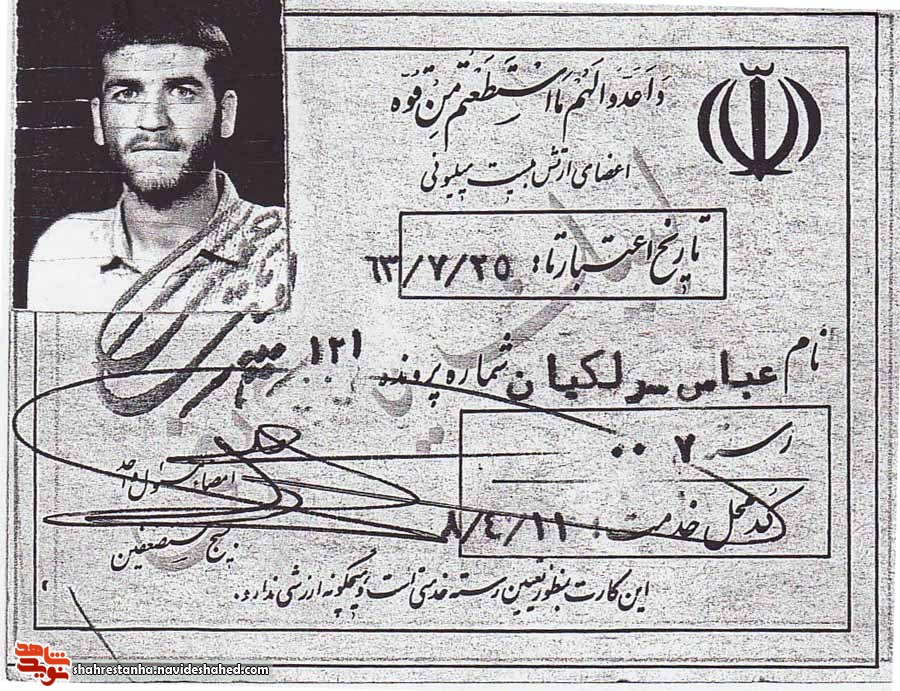 وَأَعِدّوالَهُم مَااسْتَطَعْتُم مِن قُوّه
اعضای ارتش بیست میلیونی
تاریخ اعتبار تا: ۶۳/۷/۲۵
نام عباس سرلکیان شماره پرونده ۱۲۱
رسته ۷۰۰
کد محل خدمت: ۸/۴/۱۱
امضاء مسئول واحد
بسیج مستضعفین
این کارت بمنظور تعیین رسته خدمتی است و هیچگونه ارزشی ندارد.
نوید شاهد
shahrestanha.navideshahed.com